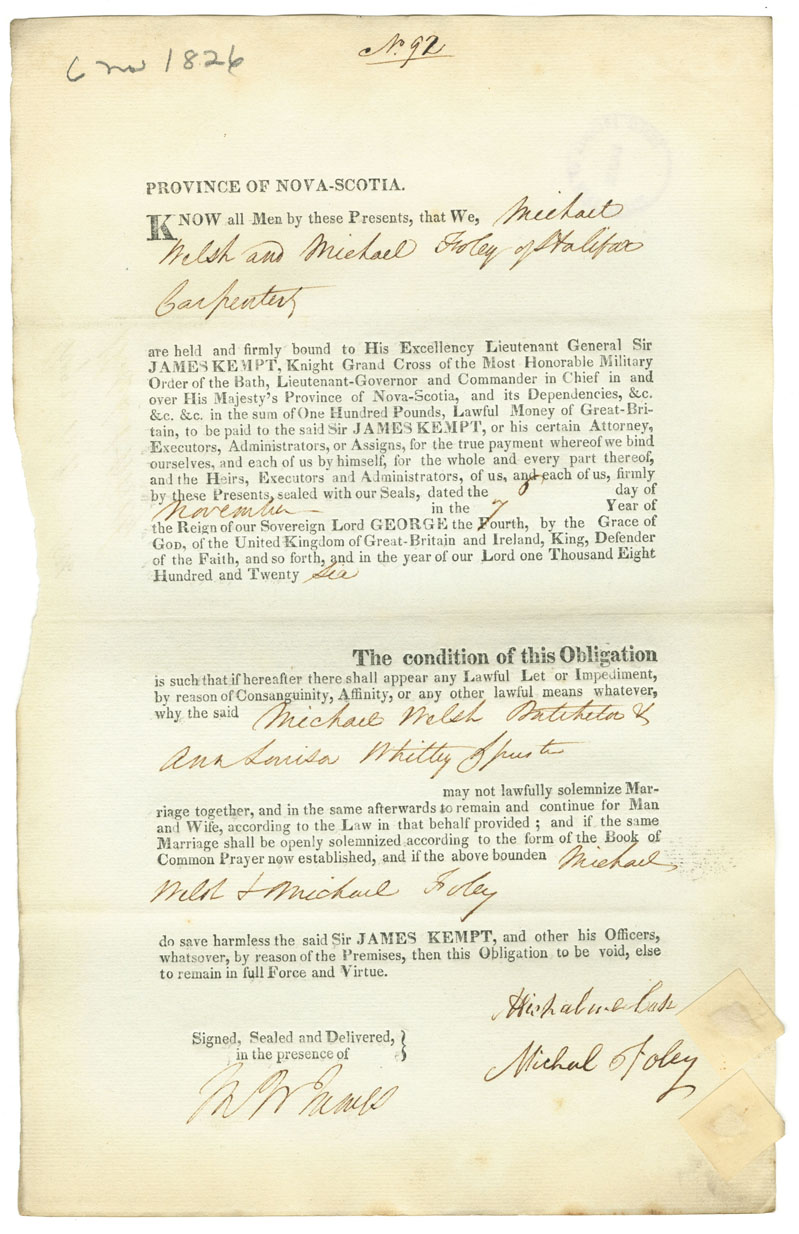 6 nov 1826
No. 92
PROVINCE OF NOVA-SCOTIA.
KNOW all Men by these Presents, that We, Michael
Welsh and Michael Foley of Halifax
Carpenters
are held and firmly bound to His Excellency Lieutenant General Sir
JAMES KEMPT, Knight Grand Cross of the Most Honorable Military
Order of the Bath, Lieutenant-Governor and Commander in Chief in and
over His Majesty's Province of Nova-Scotia, and its Dependencies, &c.
&c. &c. in the sum of One Hundred Pounds, Lawful Money of Great-Bri-
tain, to be paid to the said Sir JAMES KEMPT, or his certain Attorney,
Executors, Administrators, or Assigns, for the true payment whereof we bind
ourselves, and each of us by himself, for the whole and every part thereof,
and the Heirs, Executors and Administrators, of us, and each of us, firmly
by these Presents, sealed with our Seals, dated the day of
November in the 7 Year of
the Reign of our Sovereign Lord GEORGE the Fourth, by the Grace of
GOD, of the United Kingdom of Great-Britain and Ireland, King, Defender
of the Faith, and so forth, and in the year of our Lord one Thousand Eight
Hundred and Twenty Six
The condition of this Obligation
is such that if hereafter there shall appear any Lawful Let or Impediment,
by reason of Consanguinity, Affinity, or any other lawful means whatever,
why the said Michael Welsh Batchelor &
Ann Louisa Whitley Spinster
may not lawfully solemnize Mar-
riage together, and in the same afterwards to remain and continue for Man
and Wife, according to the Law in that behalf provided ; and if the same
Marriage shall be openly solemnized according to the form of the Book of
Common Prayer now established, and if the above bounden Michael
Welsh & Michael Foley
do save harmless the said Sir JAMES KEMPT, and other his Officers,
whatsover, by reason of the Premises, then this Obligation to be void, else
to remain in full Force and Virtue.
Signed, Sealed and Delivered,
in the presence of
Michal Foley